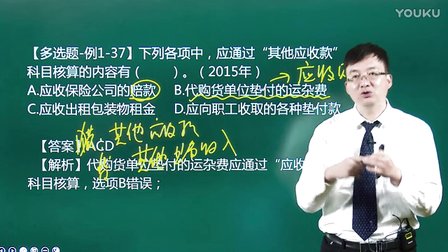 YOUKU
【多选题-例1-37】下列各项中，应通过“其他应收款”
科目核算的内容有（ ）。（2015年）
→应收
A.应收保险公司的赔款 B.代购货单位垫付的运杂费
C.应收出租包装物租金 D.应向职工收取的各种垫付款
借 其他应收款
【答案】 CD
贷 其他业务收入
【解析】代购货单位垫付的运杂费应通过“应收
科目核算，选项B错误；